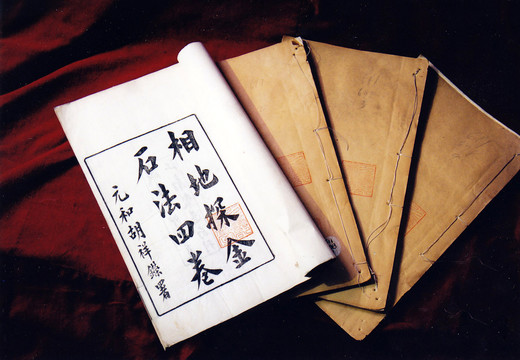 相地探金
石法四卷
元和胡祥鑅署